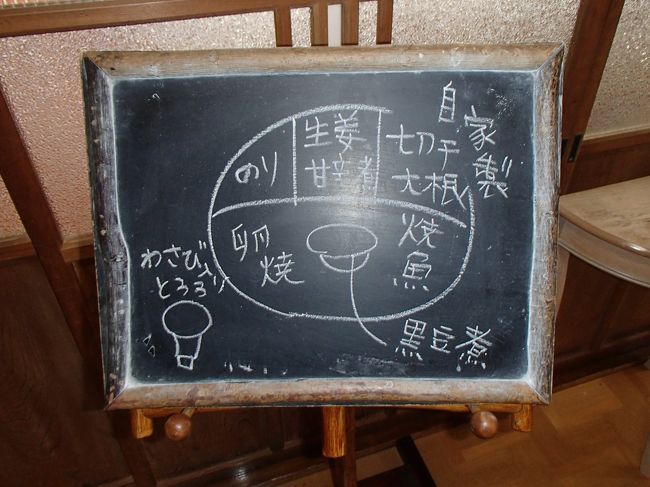 自家製
切干
大根
生姜
甘辛煮
のり
卵
焼
焼
魚
黒豆煮
わさび入り
とろろ